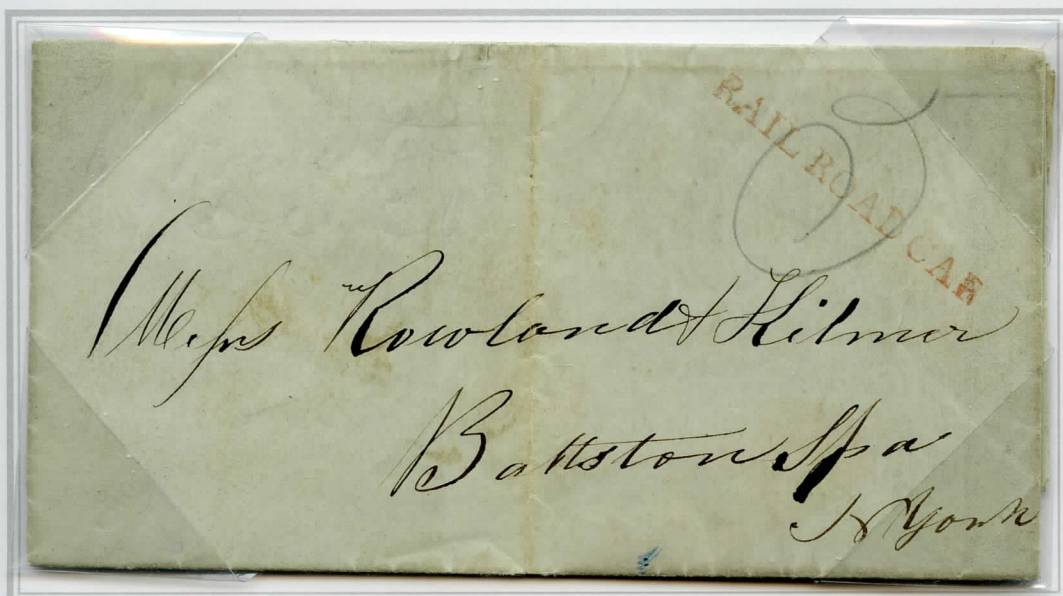 RAIL ROAD CAR
5
Mess Rowland & Kilmer
Ballston Spa
N York